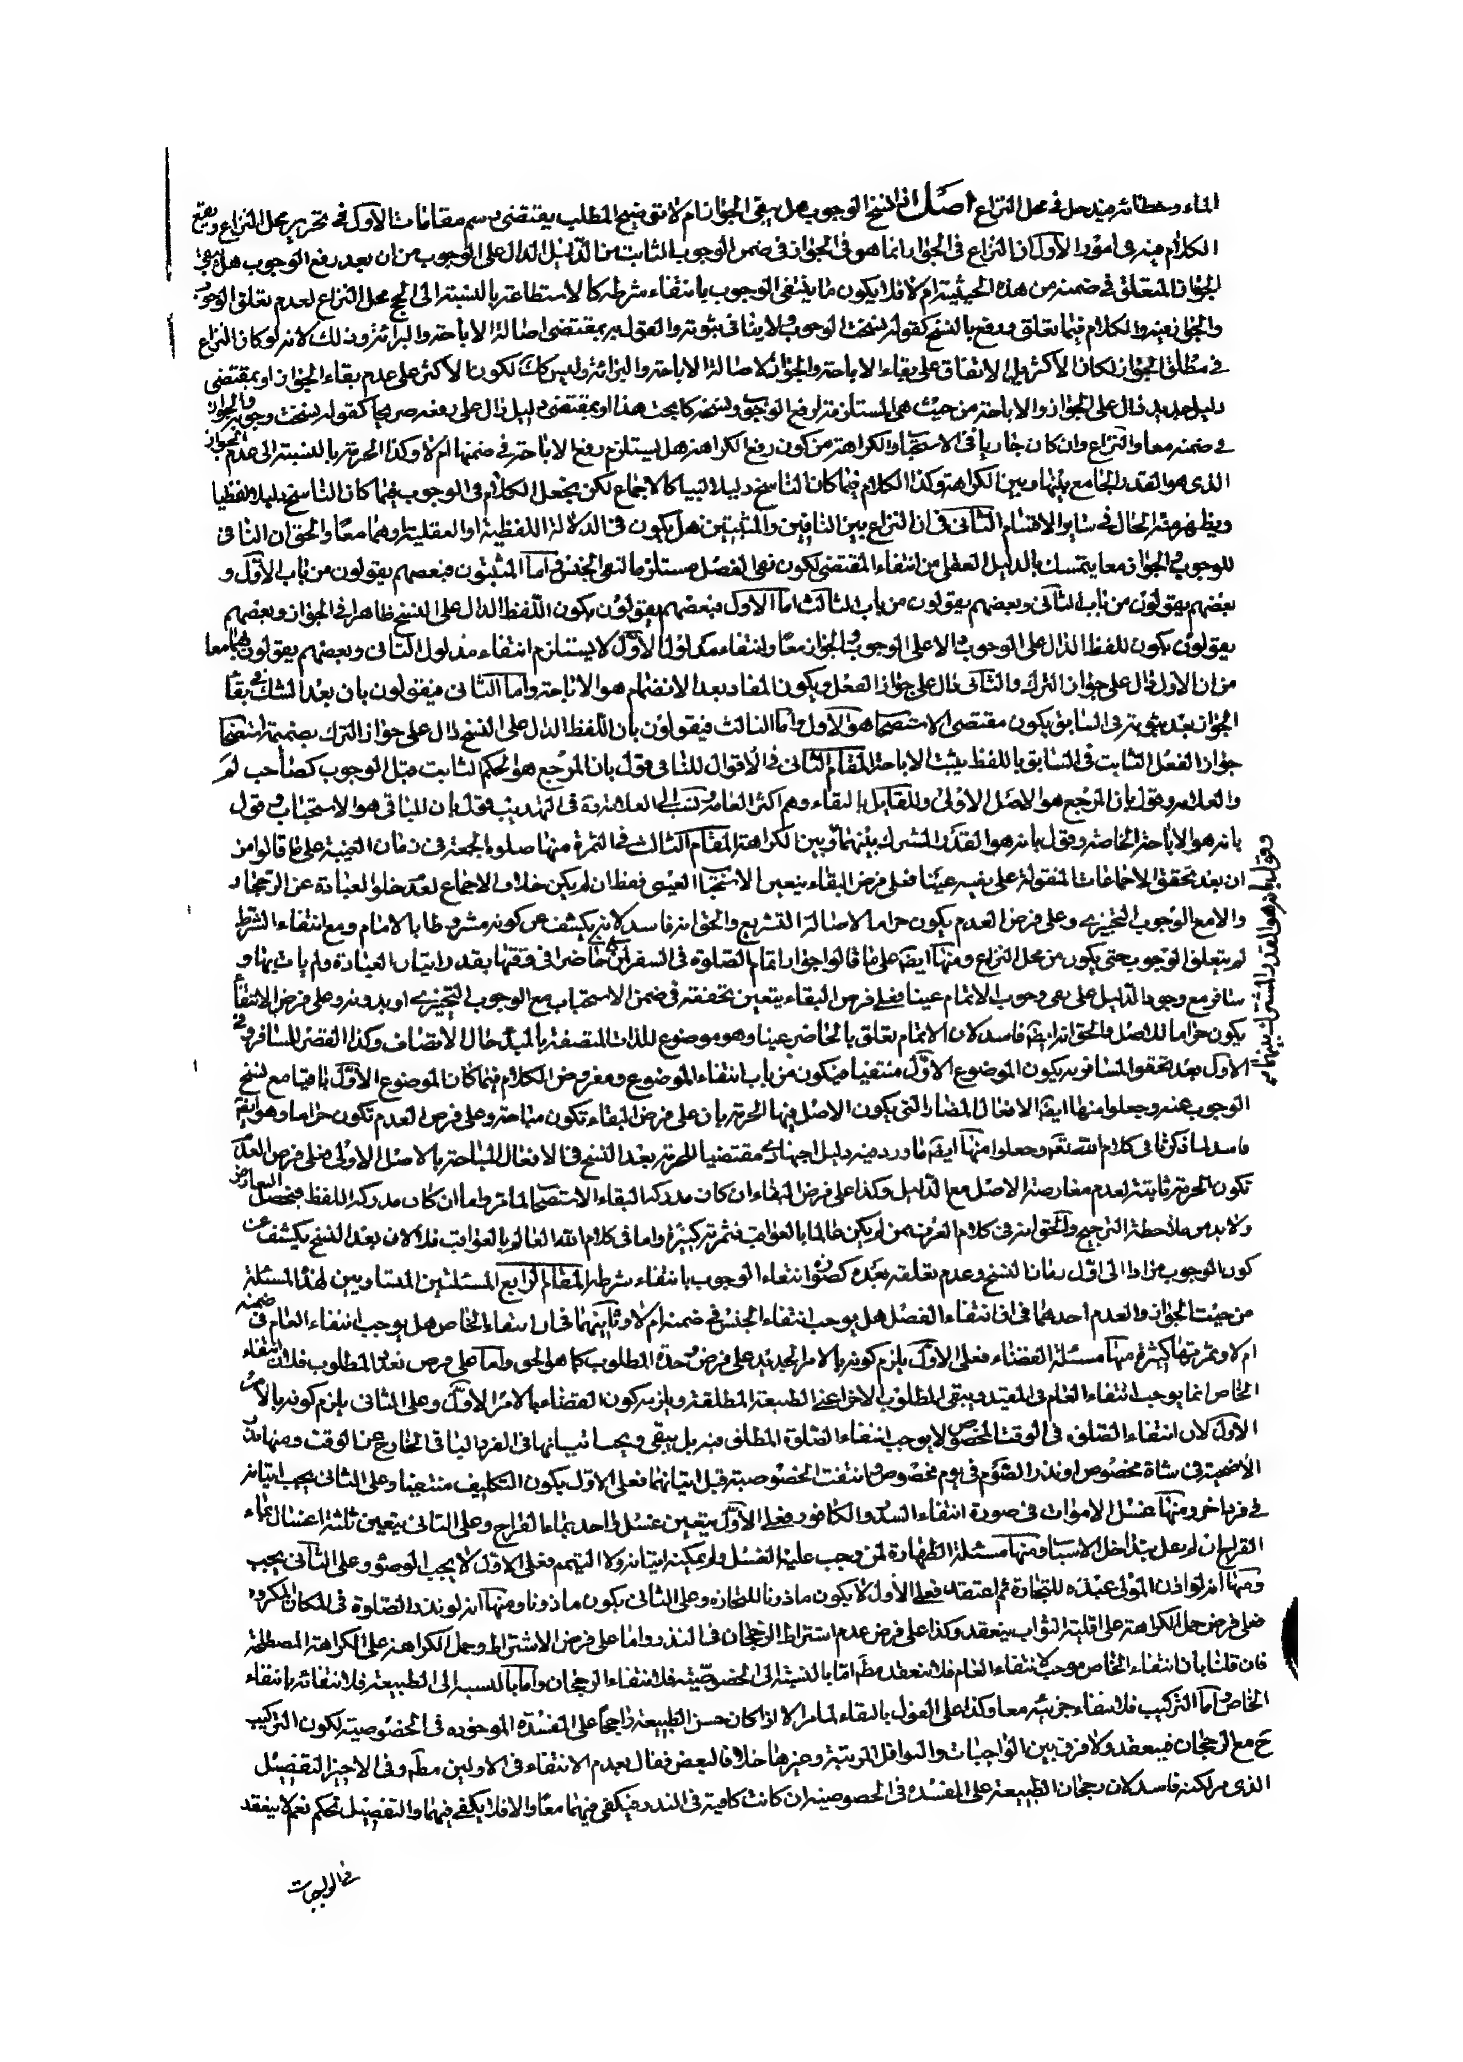 الماء وخطائه فيدخل في محل النزاع اصل اذا نسخ الوجوب هل يبقى الجواز ام لا توضيح المطلب يقتضى رسم مقامات الاول في تحرير محل النزاع ويقع
الكلام فيه في امور الاول ان النزاع في الجواز انما هو في الجواز في ضمن الوجوب الثابت من الدليل الدال على الوجوب من ان بعد رفع الوجوب هل يبقى
الجواز المتعلق في ضمنه من هذه الحيثية ام لا فلا يكون ما ينتفى الوجوب بانتفاء شرطه كالاستطاعة بالنسبة الى الحج محل النزاع لعدم تعلق الوجوب
والجواز فيه والكلام فيما تعلق ورفع بالنسخ كقوله نسخت الوجوب ولا ينافى ثبوته والقول به بمقتضى اصالة الاباحة والبرائة وذلك لانه لو كان النزاع
في مطلق الجواز لكان الاكثر بل الاتفاق على بقاء الاباحة والجواز لاصالة الاباحة والبرائة وليس كك لكون الاكثر على عدم بقاء الجواز او بمقتضى
دليل جديد دال على الجواز والاباحة من حيث هى المستلزمة لرفع الوجوب ونسخه كما بحث هذا او بمقتضى دليل دال على رفعه صريحا كقوله نسخت وجوبه والجواز
في ضمنه معا والنزاع وان كان جاريا في الاستحباب والكراهة من كون رفع الكراهة هل يستلزم رفع الاباحة في ضمنها ام لا وكذا الحرمة بالنسبة الى عدم الجواز
الذى هو القدر الجامع بينها وبين الكراهة وكذا الكلام فيما كان الناسخ دليلا لبيا كالاجماع لكن نجعل الكلام في الوجوب فيما كان الناسخ دليلا لفظيا
ويظهر منه الحال في سائر الاقسام الثانى في ان النزاع بين النافين والمثبتين هل يكون في الدلالة اللفظية او العقلية او هما معا والحق ان النافى
للوجوب والجواز معا يتمسك بالدليل العقلى من انتفاء المقتضى لكون نفى الفصل مستلزما لنفى الجنس واما المثبتون فبعضهم يقولون من باب الاول و
بعضهم يقولون من باب الثانى وبعضهم يقولون من باب الثالث اما الاول فبعضهم يقولون بكون اللفظ الدال على النسخ ظاهرا في الجواز وبعضهم
يقولون بكون اللفظ الدال على الوجوب دالا على الوجوب والجواز معا وانتفاء مدلول الاول لا يستلزم انتفاء مدلول الثانى وبعضهم يقولون بهما معا
من ان الاول دال على جواز الترك والثانى دال على جواز الفعل ويكون المفاد بعد الانضمام هو الاباحة واما الثانى فيقولون بان بعد الشك في بقاء
الجواز بعد ثبوته في السابق يكون مقتضى الاستصحاب هو الاول واما الثالث فيقولون بان اللفظ الدال على النسخ دال على جواز الترك بضميمة استصحاب
جواز الفعل الثابت في السابق باللفظ يثبت الاباحة المقام الثانى في الاقوال للنافى قول بان المرجع هو الحكم الثابت قبل الوجوب كصاحب لم
والعلامة وقول بان المرجع هو الاصل الاولى وللقائل بالبقاء وهم اكثر العامة ونسب الى العلامة في التهذيب قول بان الباقى هو الاستحباب وقول
بانه هو الاباحة الخاصة وقول بانه هو القدر المشترك بينهما وبين الكراهة المقام الثالث في الثمرة منها صلوة الجمعة في زمان الغيبة على ما قالوا من
وقول بانه هو القدر المشترك بينهما
ان بعد تحقق الاجماعات المنقولة على نفيه عينا فعلى فرض البقاء يتعين الاستحباب العينى فقط ان لم يكن خلاف الاجماع لعدم خلو العبادة عن الرجحان
والا مع الوجوب التخييرى وعلى فرض العدم يكون حراما لاصالة التشريع والحق انه فاسد لانه يكشف عن كونه مشروطا بالامام ومع انتفاء الشرط
لم يتعلق الوجوب حتى يكون من محل النزاع ومنها ايضا على ما قالوا جواز اتمام الصلوة في السفر لمن كان حاضرا في وقتها بقدر اتيان العبادة ولم يات بها و
سافر مع وجود الدليل على نفى وجوب الاتمام عينا فعلى فرض البقاء يتعين تحققه في ضمن الاستحباب مع الوجوب التخييرى او بدونه وعلى فرض الانتفاء
يكون حراما للاصل والحق انه ايضا فاسد لان الاتمام تعلق بالحاضر عينا وهو موضوع للذات المتصفة بالمبدء حال الاتصاف وكذا القصر للمسافر وفى
الاول بعد تحقق المسافرية يكون الموضوع الاول منتفيا فيكون من باب انتفاء الموضوع ومفروض الكلام فيما كان الموضوع الاول باقيا مع نسخ
الوجوب عنه وجعلوا منها ايضا الافعال المضار التى يكون الاصل فيها الحرمة بان على فرض البقاء تكون مباحة وعلى فرض العدم تكون حراما وهو ايضا
فاسد لما ذكرنا في كلام الله تعالى وجعلوا منها ايضا ما ورد فيه دليل اجتهادى مقتضيا للحرمة بعد النسخ في الافعال المباحة بالاصل الاولى فعلى فرض العدم
تكون الحرمة ثابتة لعدم معارضة الاصل مع الدليل وكذا على فرض البقاء ان كان مدركه البقاء الاستصحاب لما مر واما ان كان مدركه اللفظ فيحصل التعارض
ولا بد من ملاحظة الترجيح والحق انه في كلام العرف ممن لم يكن عالما بالعواقب فثمرته كثيرة واما في كلام الله العالم بالعواقب فلا لان بعد النسخ يكشف عن
كون الوجوب مرادا الى اول زمان النسخ وعدم تعلقه بعده كصورة انتفاء الوجوب بانتفاء شرطه المقام الرابع المسئلتين المساويتين لهذه المسئلة
من حيث الجواز والعدم احدهما في ان انتفاء الفصل هل يوجب انتفاء الجنس في ضمنه ام لا وثانيهما في ان انتفاء الخاص هل يوجب انتفاء العام في ضمنه
ام لا وثمرتها كثيرة منها مسئلة القضاء فعلى الاول يلزم كونه بالامر الجديد على فرض وحدة المطلوب كما هو الحق واما على فرض تعدد المطلوب فلا لان انتفاء
الخاص انما يوجب انتفاء العام في المقيد ويبقى المطلوب الاخر اعنى الطبيعة المطلقة ويلزمه كون القضاء بالامر الاول وعلى الثانى يلزم كونه بالامر
الاول لان انتفاء الصلوة في الوقت المخصوص لا يوجب انتفاء الصلوة المطلق فيه بل يبقى ويجب اتيانها في الفرد الباقى الخارج عن الوقت ومنها نذر
الاضحية في شاة مخصوص او نذر الصوم في يوم مخصوص وانتفت الخصوصية قبل اتيانهما فعلى الاول يكون التكليف منتفيا وعلى الثانى يجب اتيانه
في فرد اخر ومنها غسل الاموات في صورة انتفاء السدر والكافور فعلى الاول يتعين غسل واحد بماء القراح وعلى الثانى يتعين ثلثة اغسال بماء
القراح ان لم يعمل بتداخل الاسباب ومنها مسئلة الطهارة لمن وجب عليه الغسل ولم يمكنه اتيانه ولا التيمم فعلى الاول لا يجب الوضوء وعلى الثانى يجب
ومنها انه لو اذن المولى عبده للتجارة ثم اعتقه فعلى الاول لا يكون ماذونا للتجارة وعلى الثانى يكون ماذونا ومنها انه لو نذر الصلوة في المكان المكروه
فعلى فرض حمل الكراهة على اقلية الثواب ينعقد وكذا على فرض عدم اشتراط الرجحان في النذر واما على فرض الاشتراط وحمل الكراهة على الكراهة المصطلحة
فان قلنا بان انتفاء الخاص موجب لانتفاء العام فلا انعقد مط اما بالنسبة الى الخصوصية فلانتفاء الرجحان واما بالنسبة الى الطبيعة فلانتفائه بانتفاء
الخاص واما التركيب فلانتفاء جزئيه معا وكذا على القول بالبقاء لما مر الا اذا كان حسن الطبيعة راجحا على المفسدة الموجودة في الخصوصية لكون التركيب
ح مع الرجحان فينعقد ولا فرق بين الواجبات والنوافل المرتبة وغيرها خلافا لبعض فقال بعدم الانتفاء في الاولين مط وفى الاخير التفصيل
الذى مر لكنه فاسد لان رجحان الطبيعة على المفسدة في الخصوصية ان كانت كافية في النذر فيكفى فيهما معا والا فلا يكفى فيهما والتفصيل تحكم نعم لا ينعقد
في الواجبات